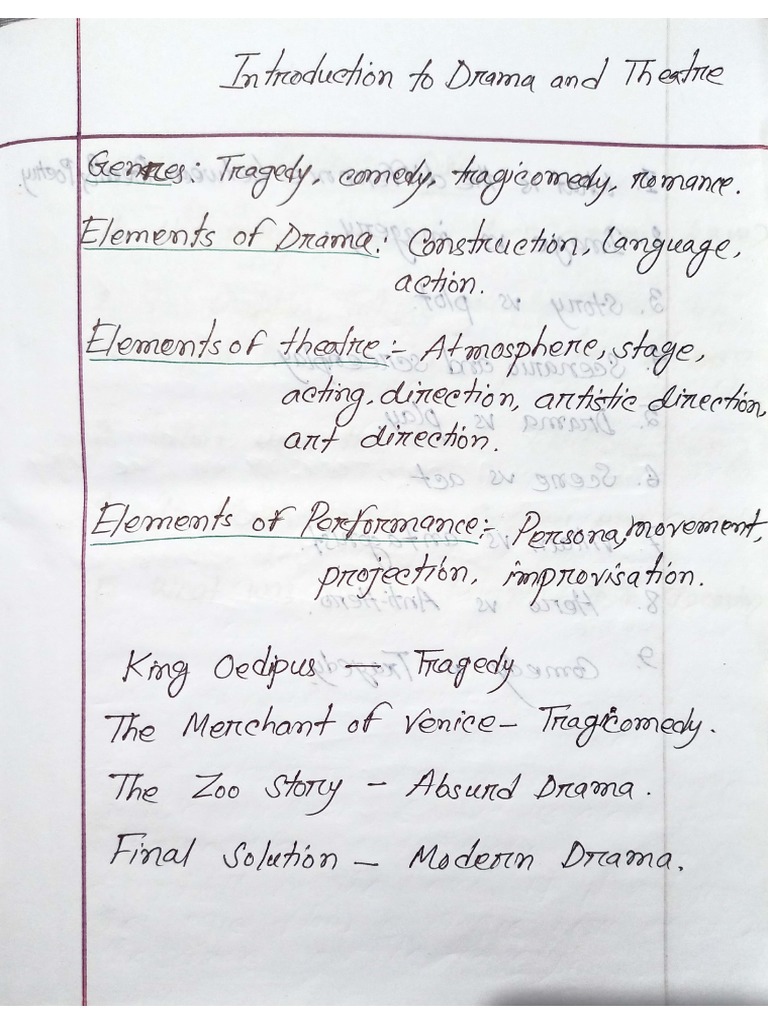 Introduction to Drama and Theatre
Genres: Tragedy, comedy, tragicomedy, romance.
Elements of Drama: Construction, Language,
action.
Elements of theatre:- Atmosphere, stage,
acting, direction, artistic direction,
art direction.
Elements of Performance:- Persona, movement,
projection, improvisation.
King Oedipus — Tragedy
The Merchant of Venice - Tragicomedy.
The Zoo Story - Absurd Drama.
Final Solution - Modern Drama.